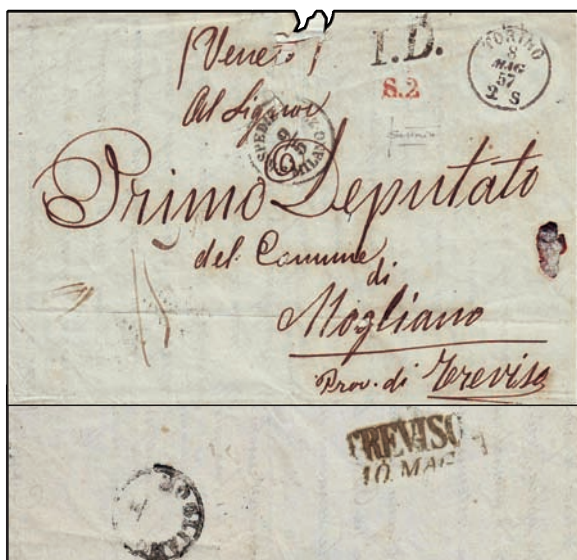 (Veneto)
I.D.
S.2
TORINO
8
MAG
57
2 S
Al Signor
SPEDIZ
MILANO
9
5
Primo Deputato
del Comune
di
Mogliano
Prov. di Treviso
TREVISO
10. MAG